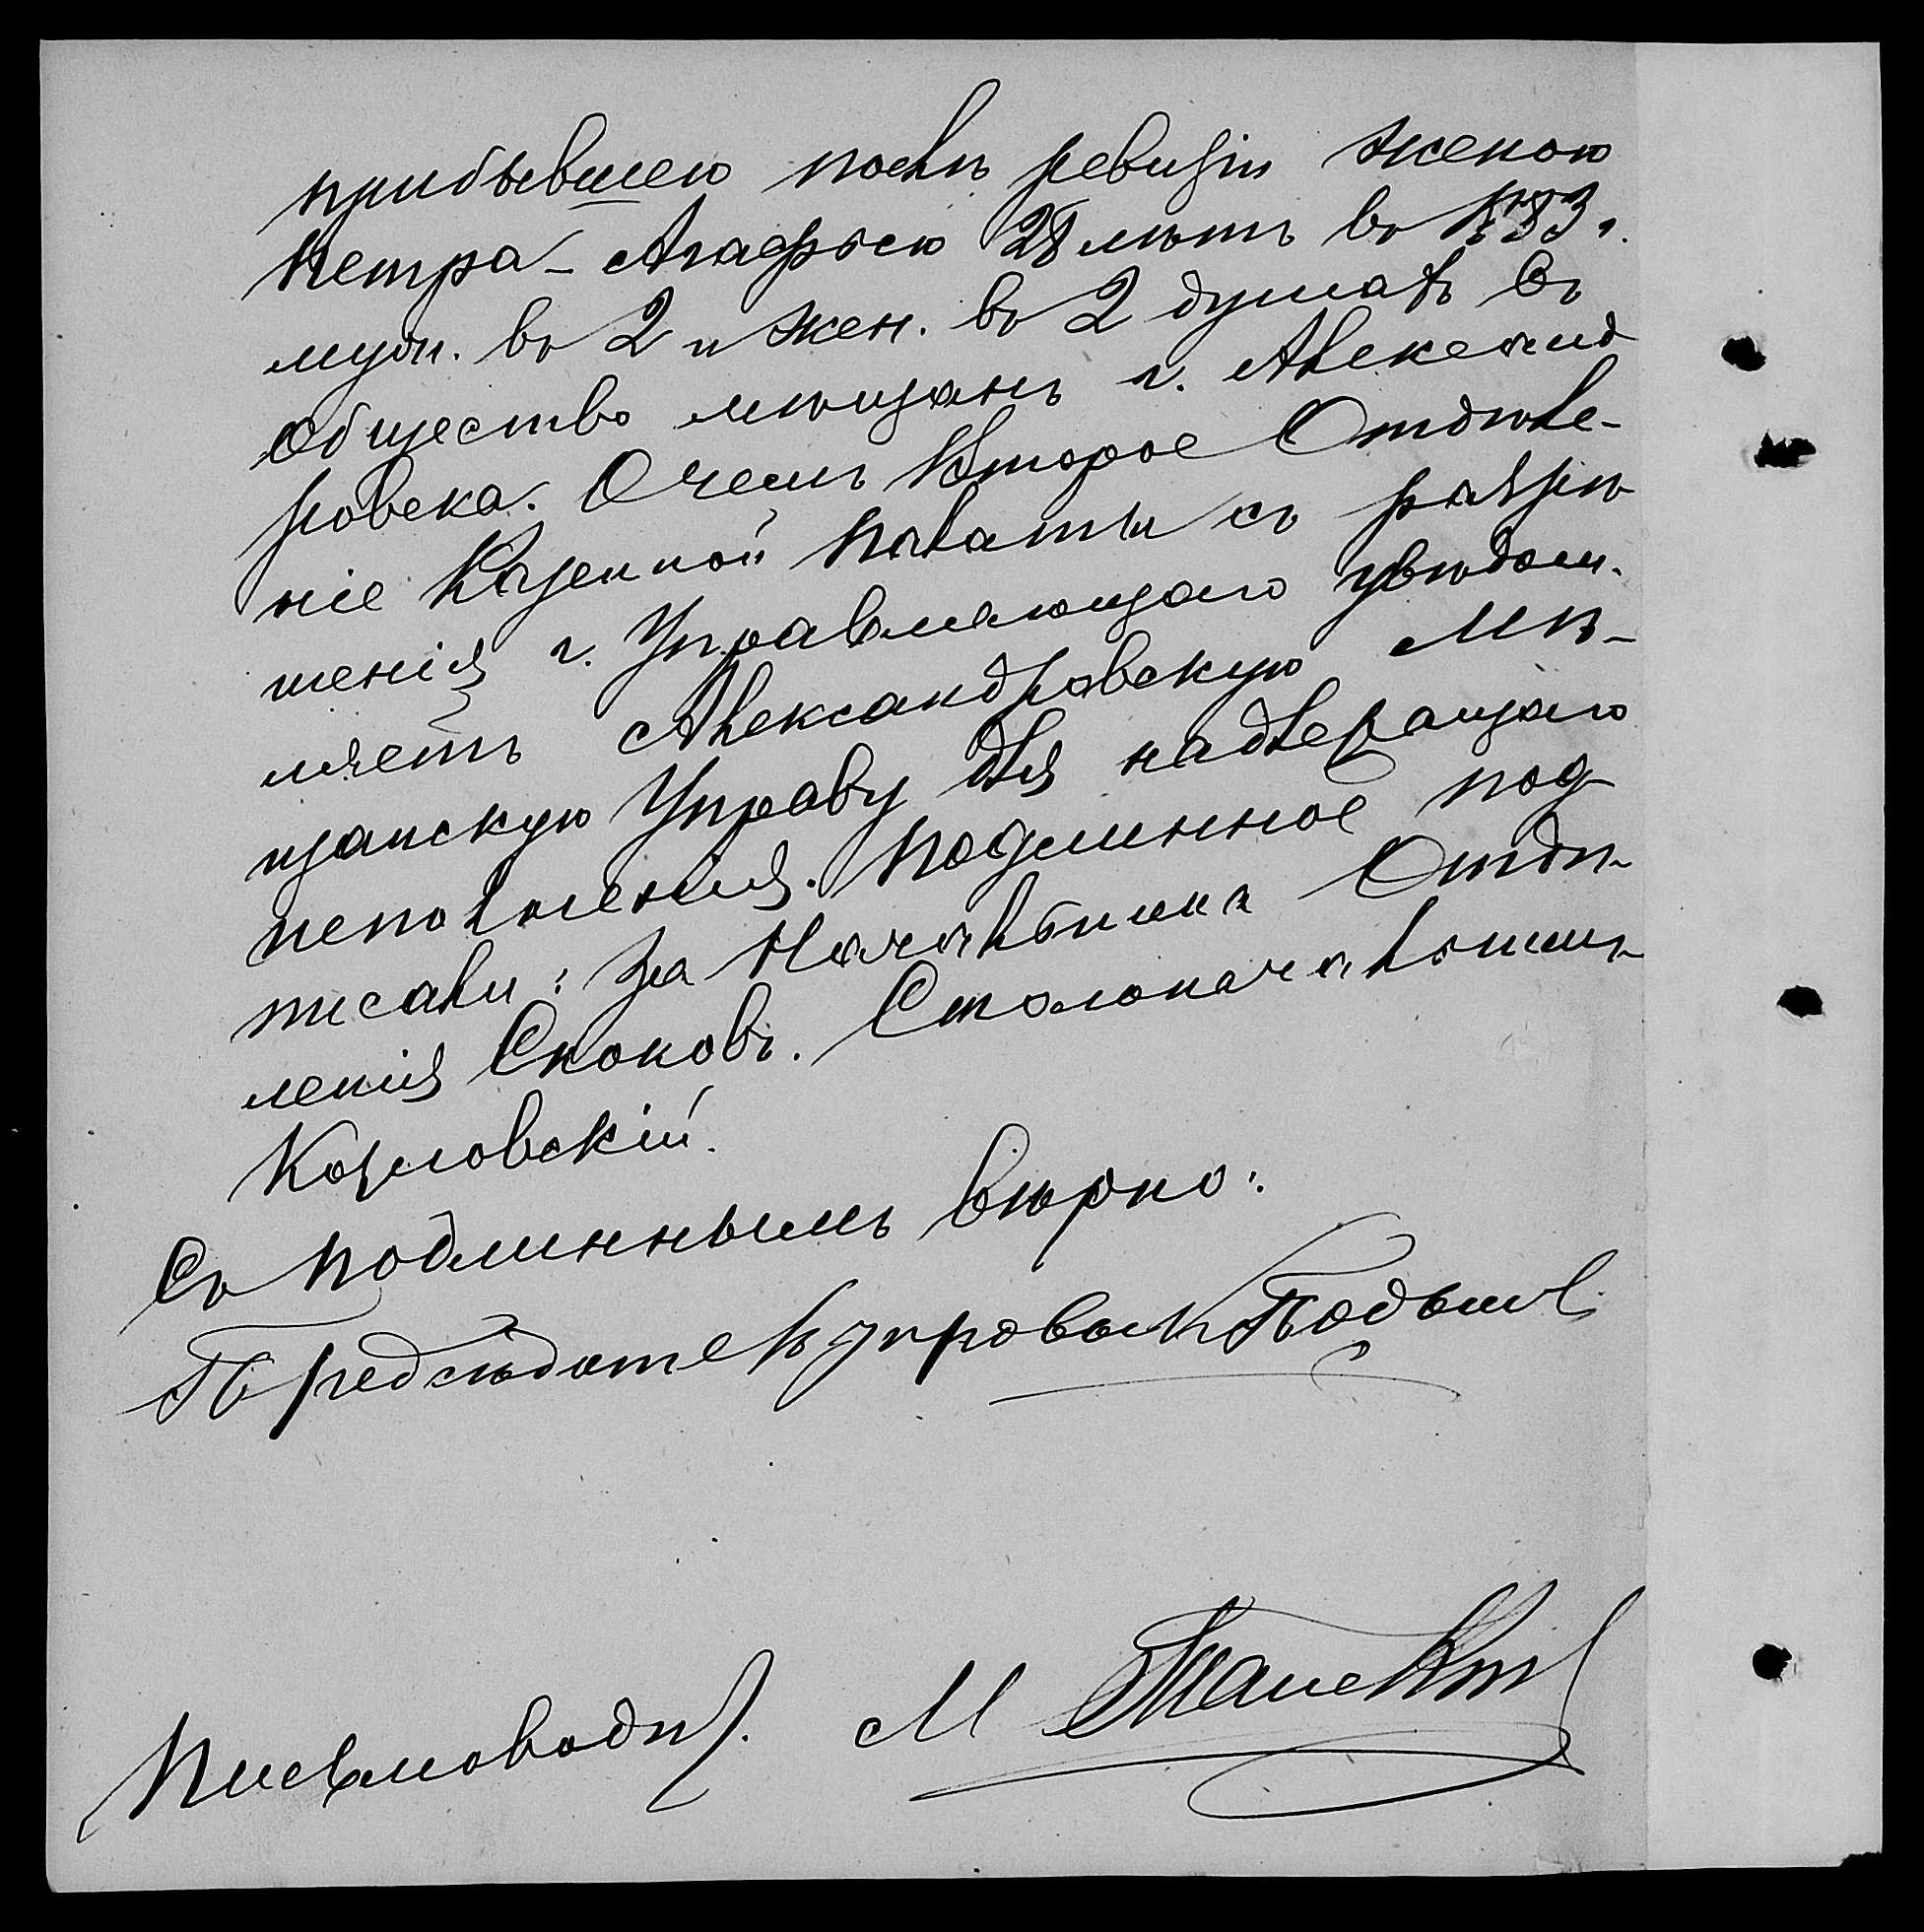 прибывшею послѣ ревизіи женою
Петра – Агафьею 28 лѣтъ въ 1883 г.
муж. въ 2 и жен. въ 2 душахъ въ
общество мѣщанъ г. Александ
ровска. О чемъ Второе Отдѣле-
ніе Казенной Палаты съ разрѣ
шенія г. Управляющаго увѣдом-
ляетъ Александровскую Мѣ-
щанскую Управу для надлежащаго
исполненія. Подлинное под-
писали: За Начальника Отдѣ-
ленія Сноковъ. Столоначальникъ
Козловскій.
Съ подлиннымъ вѣрно:
Предсѣдатель управы
Письмоводит. М